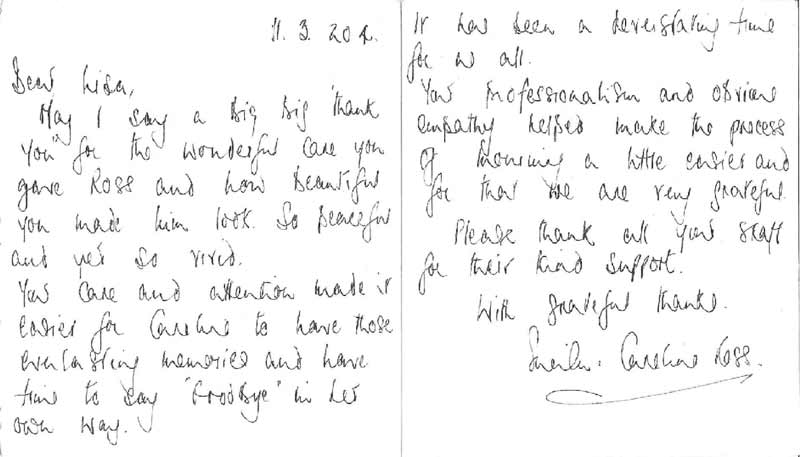 11. 3. 20
Dear Lisa,
May I say a Big Big "thank
you" for the wonderful care you
gave Ross and how beautiful
you made him look. So peaceful
and yet so vivid.
Your care and attention made it
easier for Caroline to have those
everlasting memories and have
time to say "Goodbye" in her
own way.
It has been a devestating time
for us all.
Your professionalism and obvious
empathy helped make the process
of mourning a little easier and
for that we are very grateful.
Please thank all your staff
for their kind support.
With grateful thanks.
Caroline Ross.